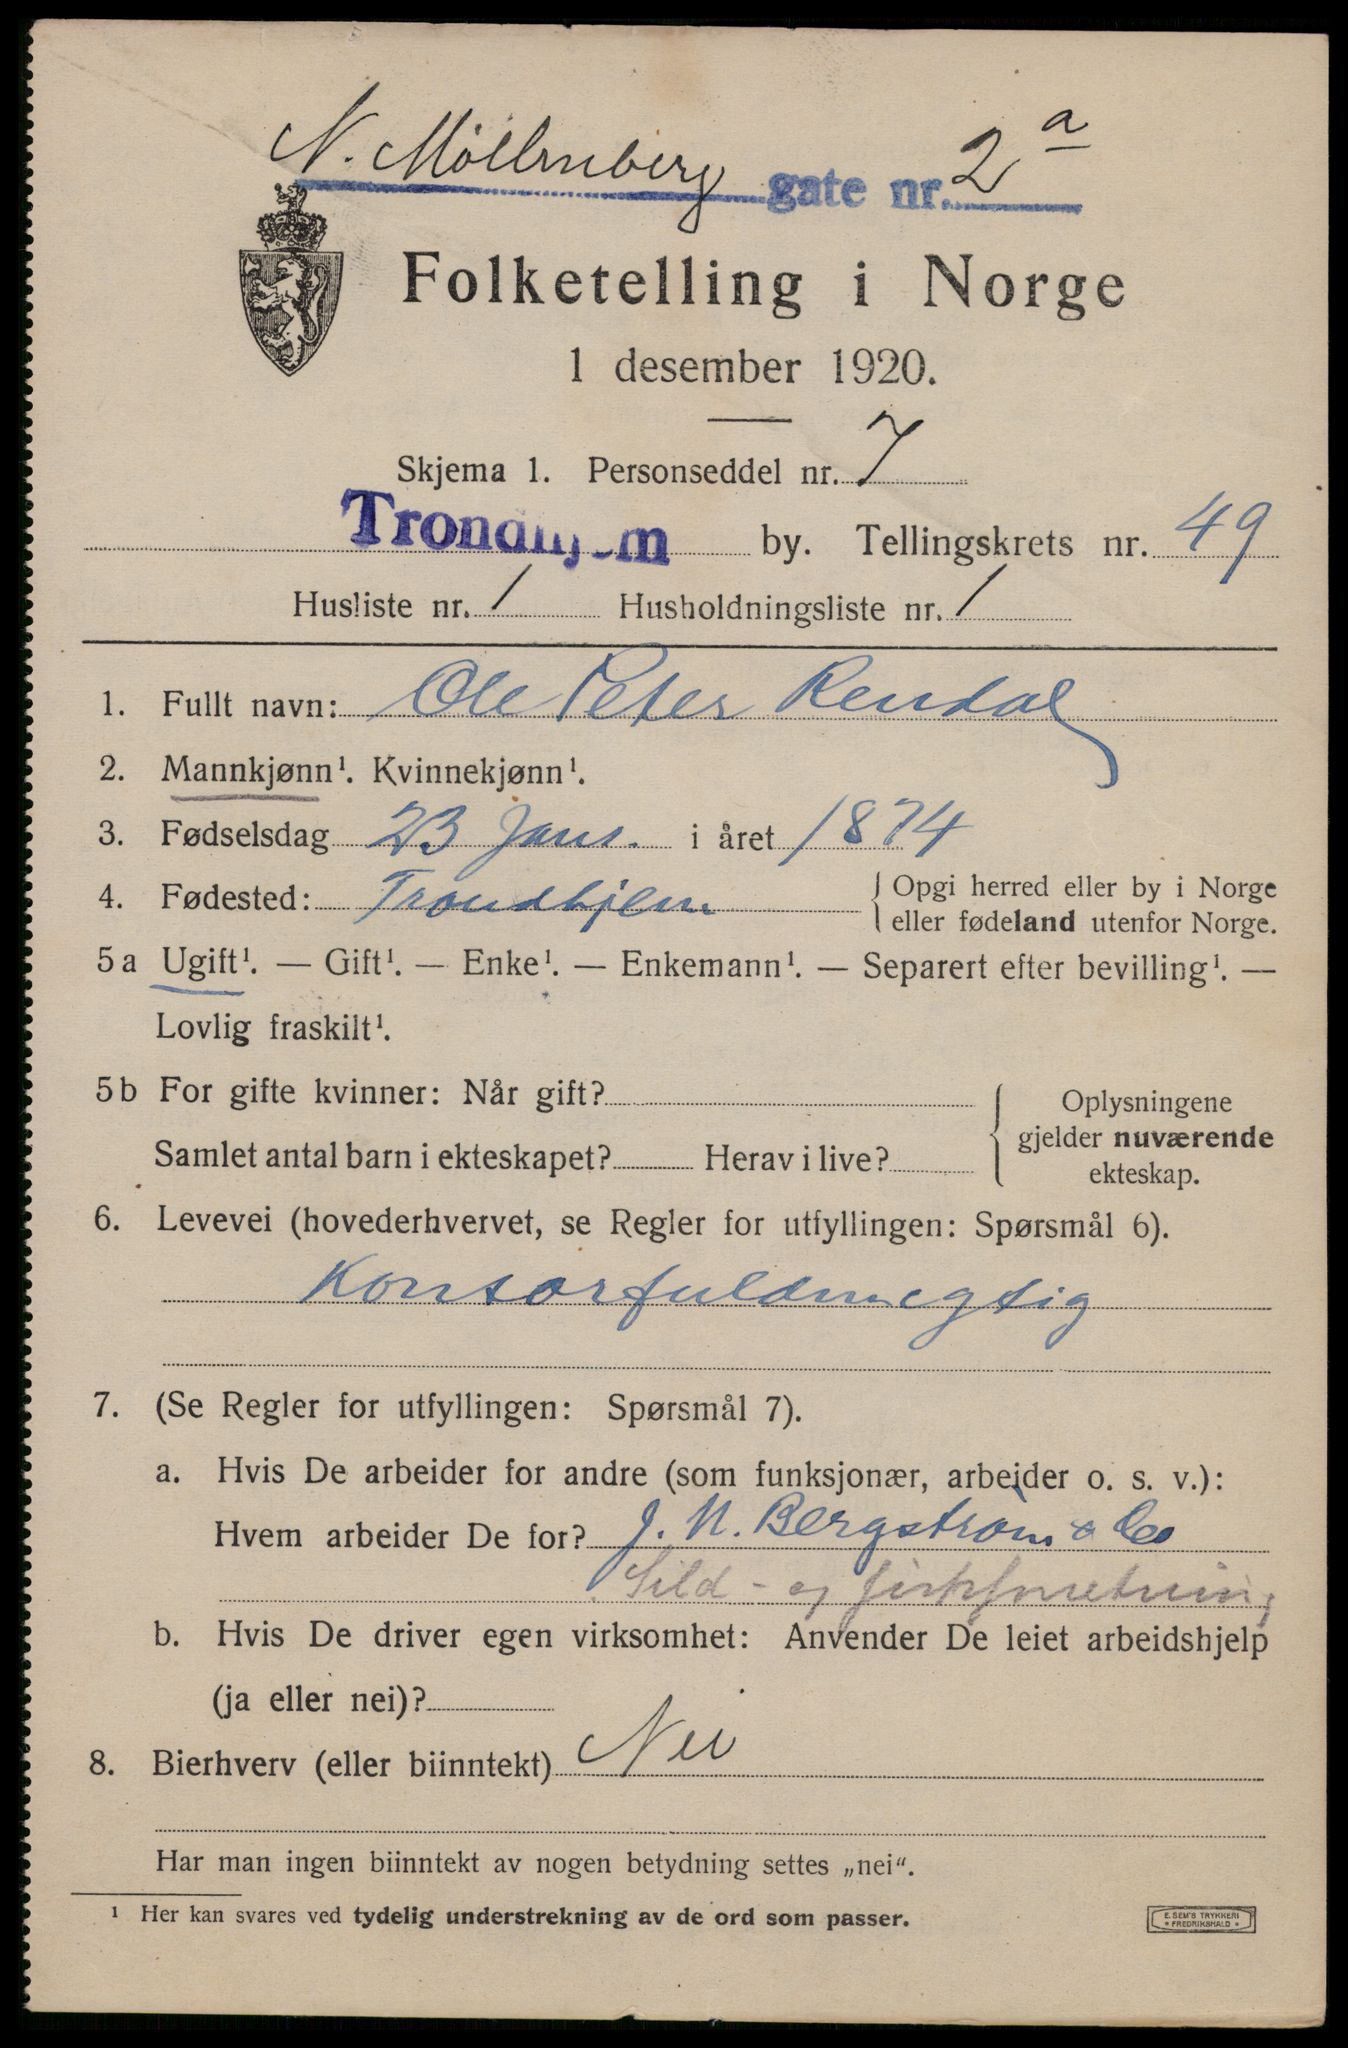 N. Möllenberg gate nr. 2a
Folketelling i Norge
1 desember 1920.
Skjema 1. Personseddel nr. 7
Trondhjem by. Tellingskrets nr. 49
Husliste nr. 1 Husholdningsliste nr. 1
1. Fullt navn: Ole Peter Rendal
2. Mannkjønn¹. Kvinnekjønn¹.
3. Fødselsdag 23 Jans. i året 1874
4. Fødested: Trondhjem { Opgi herred eller by i Norge
eller fødeland utenfor Norge.
5a Ugift¹. — Gift¹. — Enke¹. — Enkemann¹. — Separert efter bevilling¹. —
Lovlig fraskilt¹.
5b For gifte kvinner: Når gift?
Samlet antal barn i ekteskapet? Herav i live?
{ Oplysningene
gjelder nuværende
ekteskap.
6. Levevei (hovederhvervet, se Regler for utfyllingen: Spørsmål 6).
Kontorfuldmegtig
7. (Se Regler for utfyllingen: Spørsmål 7).
a. Hvis De arbeider for andre (som funksjonær, arbeider o. s. v.):
Hvem arbeider De for? J. N. Bergström & Co
Sild- og fiskforretning
b. Hvis De driver egen virksomhet: Anvender De leiet arbeidshjelp
(ja eller nei)?
8. Bierhverv (eller biinntekt) Nei
Har man ingen biinntekt av nogen betydning settes „nei“.
¹ Her kan svares ved tydelig understrekning av de ord som passer.
E. SEM'S TRYKKERI
* FREDRIKSHALD *